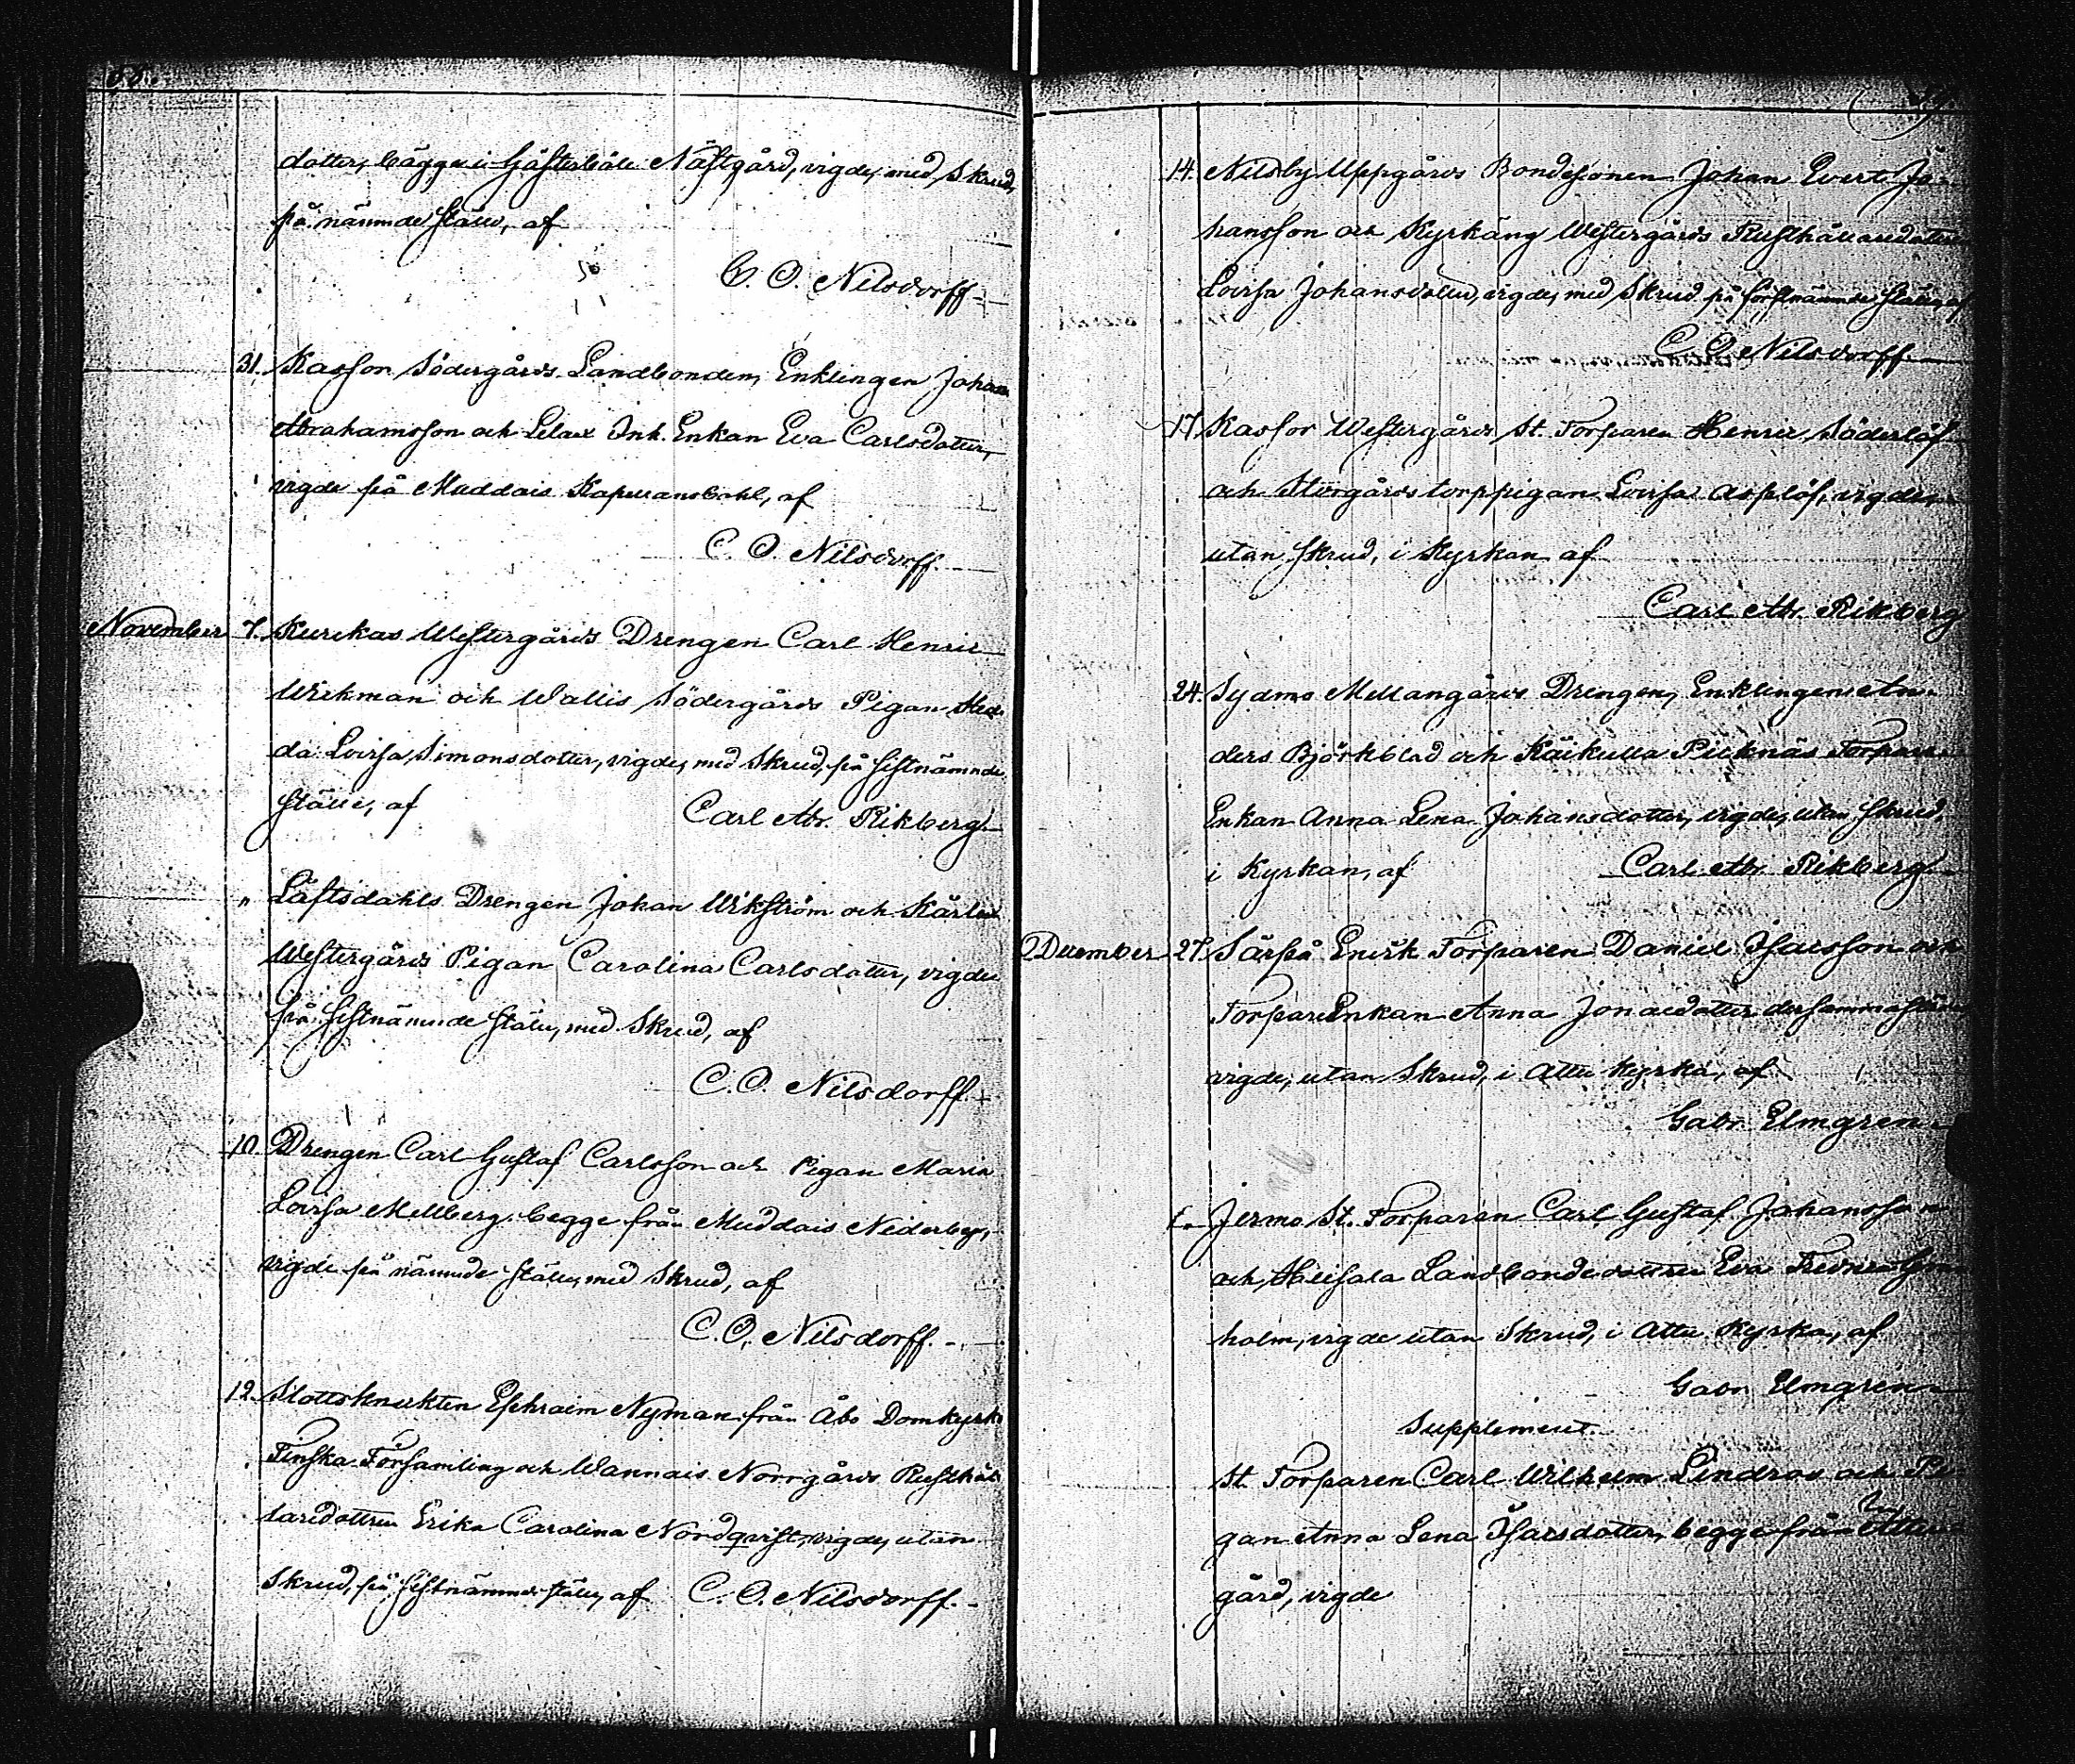 58.
dotter, bägge i Gästerböle Nästgård, vigde, med Skrud,
på nämnde ställe, af
C. O. Nilsdorff.
31. Kassor Södergårds Landbonden, Enklingen Johan
Abrahamsson och Lilax Inh. Enkan Eva Carlsdotter,
vigde på Muddais Kapellansbohl, af
C. O. Nilsdorff.
November 7. Kurikas Westergårds Drengen Carl Henric
Wickman och Wallis Södergårds Pigan Hed-
da Lovisa Simonsdotter, vigde, med Skrud, på sistnämnde
ställe, af Carl Abr. Rikberg
" Läftsdahls Drengen Johan Wikström och Kärlax
Westergårds Pigan Carolina Carlsdotter, vigde
på sistnämnde ställe, med Skrud, af
C. O. Nilsdorff.
10. Drengen Carl Gustaf Carlsson och Pigan Maria
Lovisa Mellberg begge från Muddais Nederby,
vigde på nämnde ställe, med Skrud, af
C. O. Nilsdorff.
12. Slottsknekten Ephraim Nyman från Åbo Domkyrko
Finska Församling och Wannais Norrgårds Rusthål-
laredottren Erika Carolina Nordqvist, vigde, utan
Skrud, på sistnämnde ställe, af C. O. Nilsdorff.
59.
14. Nilsby Uppgårds Bondesonen Johan Evert Jo-
hansson och Kyrkäng Westergårds Rusthållaredottren
Lovisa Johansdotter, vigde, med Skrud på förstnämnde ställe, af
C. O. Nilsdorff.
17. Kassor Westergårds St. Torparen Henric Söderlöf
och Storgårds torppigan Lovisa Asplöf, vigde,
utan skrud, i Kyrkan af
Carl Abr. Rikberg
24. Sydmo Mellangårds Drengen, Enklingen An-
ders Björkblad och Käikulla Picknäs Torpare
Enkan Anna Lena Johansdotter, vigde, utan skrud,
i Kyrkan, af Carl Abr. Rikberg
December 27. Särpå Enisk Torparen Daniel Isacsson och
TorpareEnkan Anna Jonaedotter dersammastädes
vigde, utan Skrud, i Attu Kyrka, af
Gabr. Elmgren.
Jermo St. Torparen Carl Gustaf Johansson
och Heisala Landbondedottren Eva
holm, vigde utan Skrud, i Attu Kyrka, af
Gabr. Elmgren
Supplement.
St. Torparen Carl Wilhelm Lindros och Pi-
gan Anna Lena Isacsdotter, begge från Attu
gård, vigde